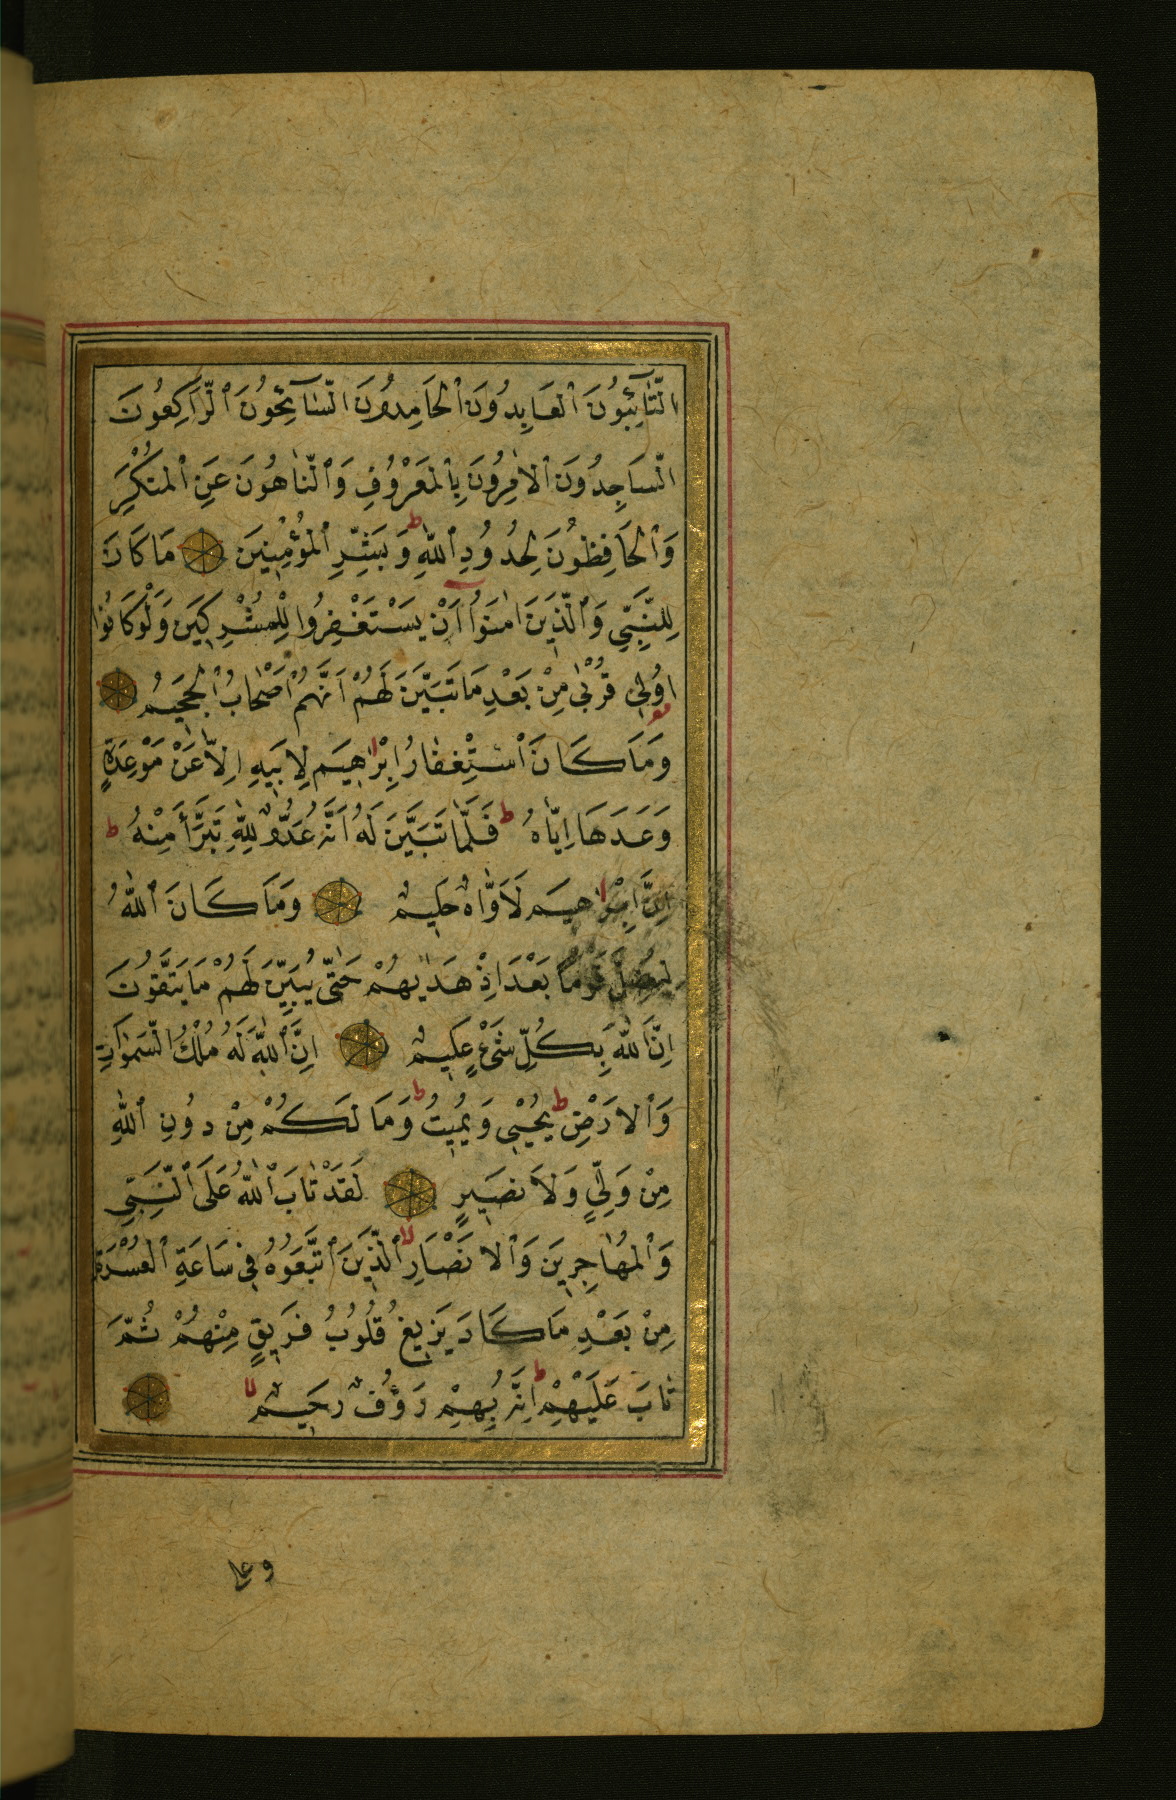 اَلتَّآئِبُونَ ٱلْعَابِدُونَ ٱلْحَامِدُونَ ٱلسَّآئِحُونَ ٱلرَّاكِعُونَ
ٱلسَّاجِدُونَ ٱلْاٰمِرُونَ بِٱلْمَعْرُوفِ وَٱلنَّاهُونَ عَنِ ٱلْمُنْكَرِ
وَٱلْحَافِظُونَ لِحُدُودِ ٱللّٰهِ ط وَبَشِّرِ ٱلْمُؤْمِنِينَ مَا كَانَ
لِلنَّبِيِّ وَٱلَّذِينَ اٰمَنُوٓا اَنْ يَسْتَغْفِرُوا لِلْمُشْرِكِينَ وَلَوْ كَانُوا
اُولِي قُرْبٰى مِنْ بَعْدِ مَا تَبَيَّنَ لَهُمْ اَنَّهُمْ اَصْحَابُ ٱلْجَحِيمِ
وَمَا كَانَ ٱسْتِغْفَارُ اِبْرٰاهِيمَ لِاَبِيهِ اِلَّا عَنْ مَوْعِدَةٍ
وَعَدَهَا اِيَّاهُ ط فَلَمَّا تَبَيَّنَ لَهُ اَنَّهُ عَدُوٌّ لِلّٰهِ تَبَرَّأَ مِنْهُ ط
اِنَّ اِبْرٰاهِيمَ لَاَوَّاهٌ حَلِيمٌ وَمَا كَانَ ٱللّٰهُ
لِيُضِلَّ قَوْمًا بَعْدَ اِذْ هَدٰيهُمْ حَتّٰى يُبَيِّنَ لَهُمْ مَا يَتَّقُونَ
اِنَّ ٱللّٰهَ بِكُلِّ شَيْءٍ عَلِيمٌ اِنَّ ٱللّٰهَ لَهُ مُلْكُ ٱلسَّمٰوَاتِ
وَٱلْاَرْضِ ط يُحْيِي وَيُمِيتُ ط وَمَا لَكُمْ مِنْ دُونِ ٱللّٰهِ
مِنْ وَلِيٍّ وَلَا نَصِيرٍ لَقَدْ تَابَ ٱللّٰهُ عَلَى ٱلنَّبِيِّ
وَٱلْمُهَاجِرِينَ وَٱلْاَنْصَارِ لا ٱلَّذِينَ ٱتَّبَعُوهُ فِي سَاعَةِ ٱلْعُسْرَةِ
مِنْ بَعْدِ مَا كَادَ يَزِيغُ قُلُوبُ فَرِيقٍ مِنْهُمْ ثُمَّ
تَابَ عَلَيْهِمْ ط اِنَّهُ بِهِمْ رَؤُفٌ رَحِيمٌ لا